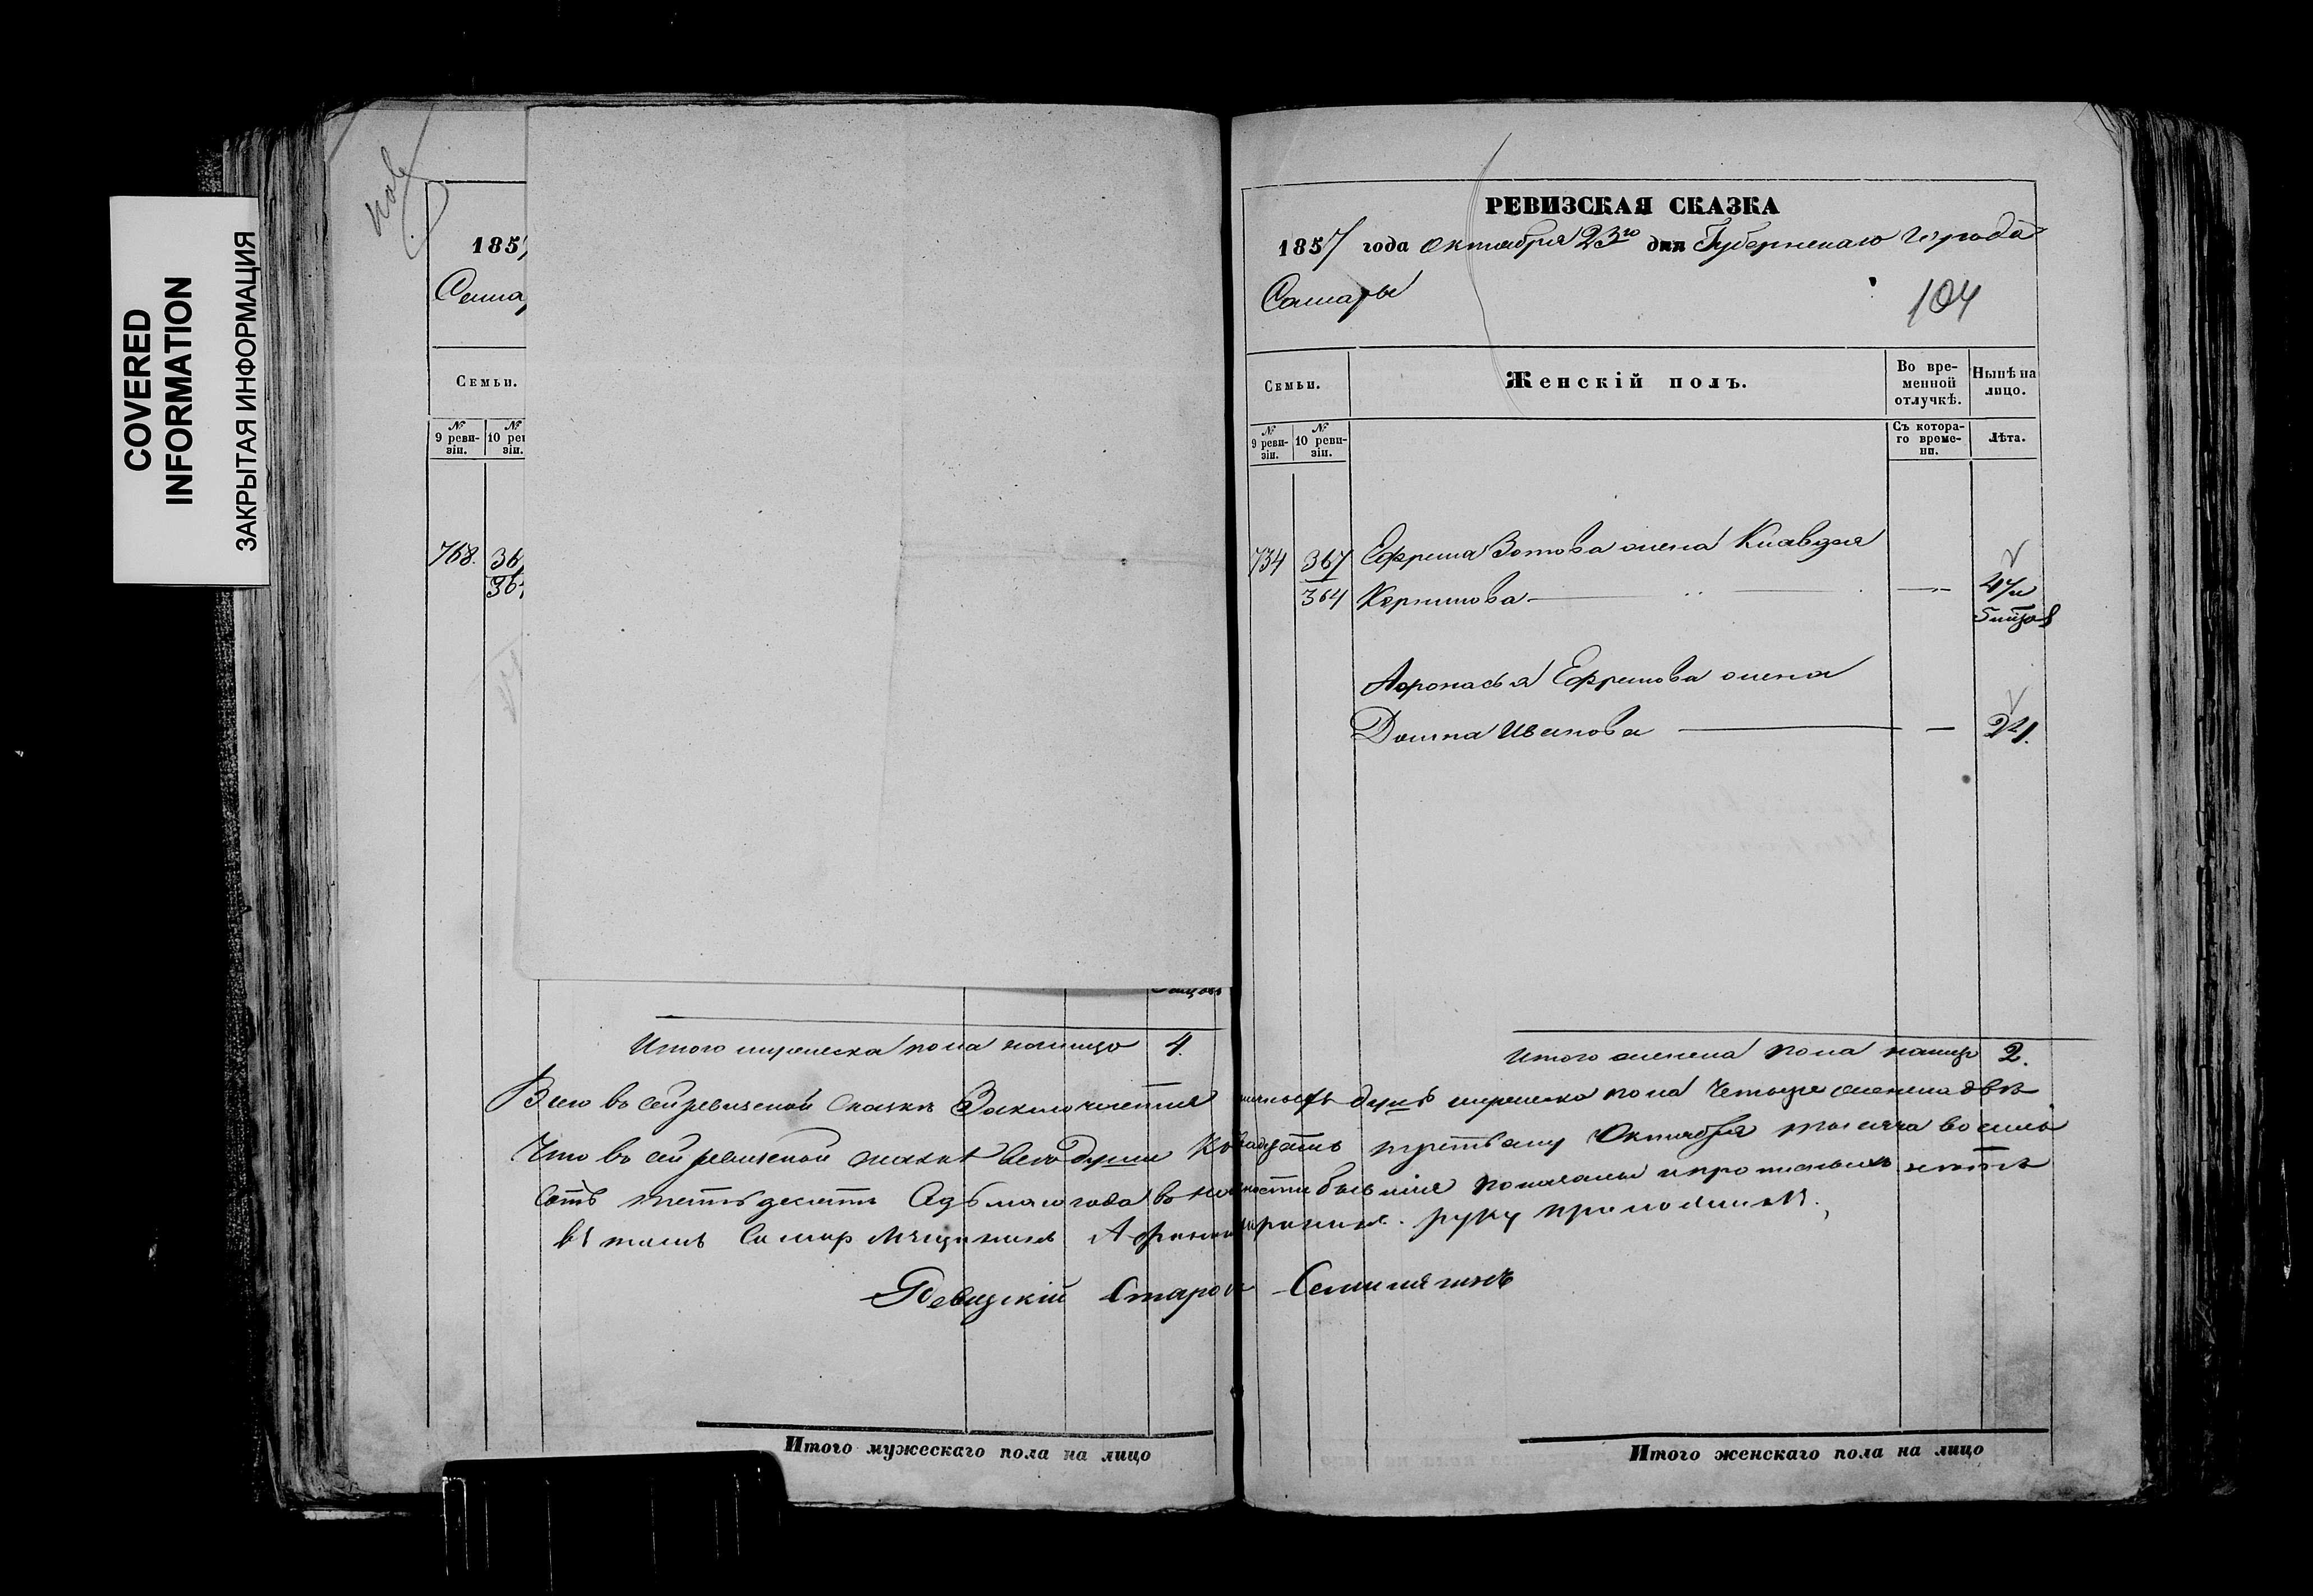 COVERED
INFORMATION
ЗАКРЫТАЯ ИНФОРМАЦИЯ
185
Сама
Семьи.
№ 9 реви-зіи.
№ 10 ре зіи.
768. 36
36
Итого мужеска пола налицо 4.
РЕВИЗСКАЯ СКАЗКА
1857 года Октября 23го дня Губернскаго города
Самары
104
Семьи.
Женскій полъ.
Во вре-
менной
отлучкѣ.
Нынѣ на
лицо.
№ 9 реви-зіи.
№ 10 реви-зіи.
Съ котора-
го време-
ни.
Лѣта.
734 367 Ефрема Зотова жена Клавдія
364 Корнилова
Афонасья Ефремова жена
Домна Иванова 21.
Итого женска пола налицо 2.
Всего въ сей ревизской сказкѣ Заключается душъ мужеска пола четыре женска двѣ
Что въ сей ревизской сказкѣ всѣ души къ двадцать третьему Октября тысяча восемь
сотъ пятьдесятъ седьмаго года въ наличности бывшія показаны и прописныхъ нѣтъ
въ томъ Самар мѣщанинъ руку приложилъ.
Староста
Итого мужескаго пола на лицо
Итого женскаго пола на лицо